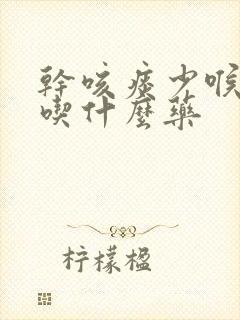 幹咳痰少喉
喫什麼藥
柠檬楹